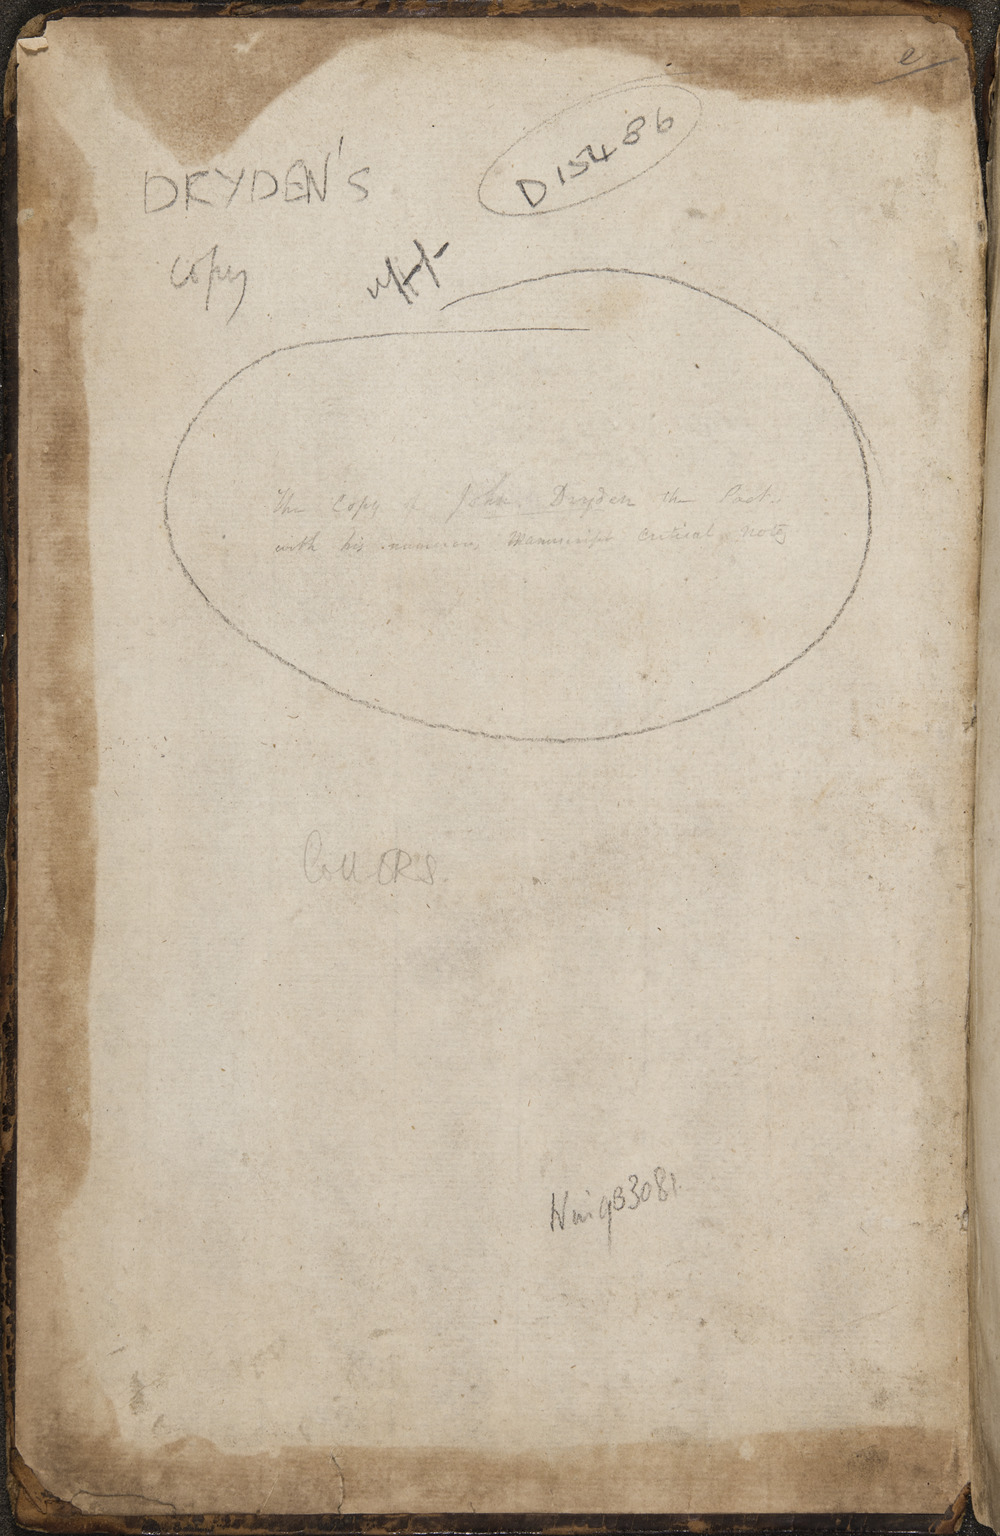 e
D 15486
DRYDEN'S
Copy
The Copy of John Dryden the Poet
with his numerous Manuscript Critical Notes
Coll CR8.
Wing B3081